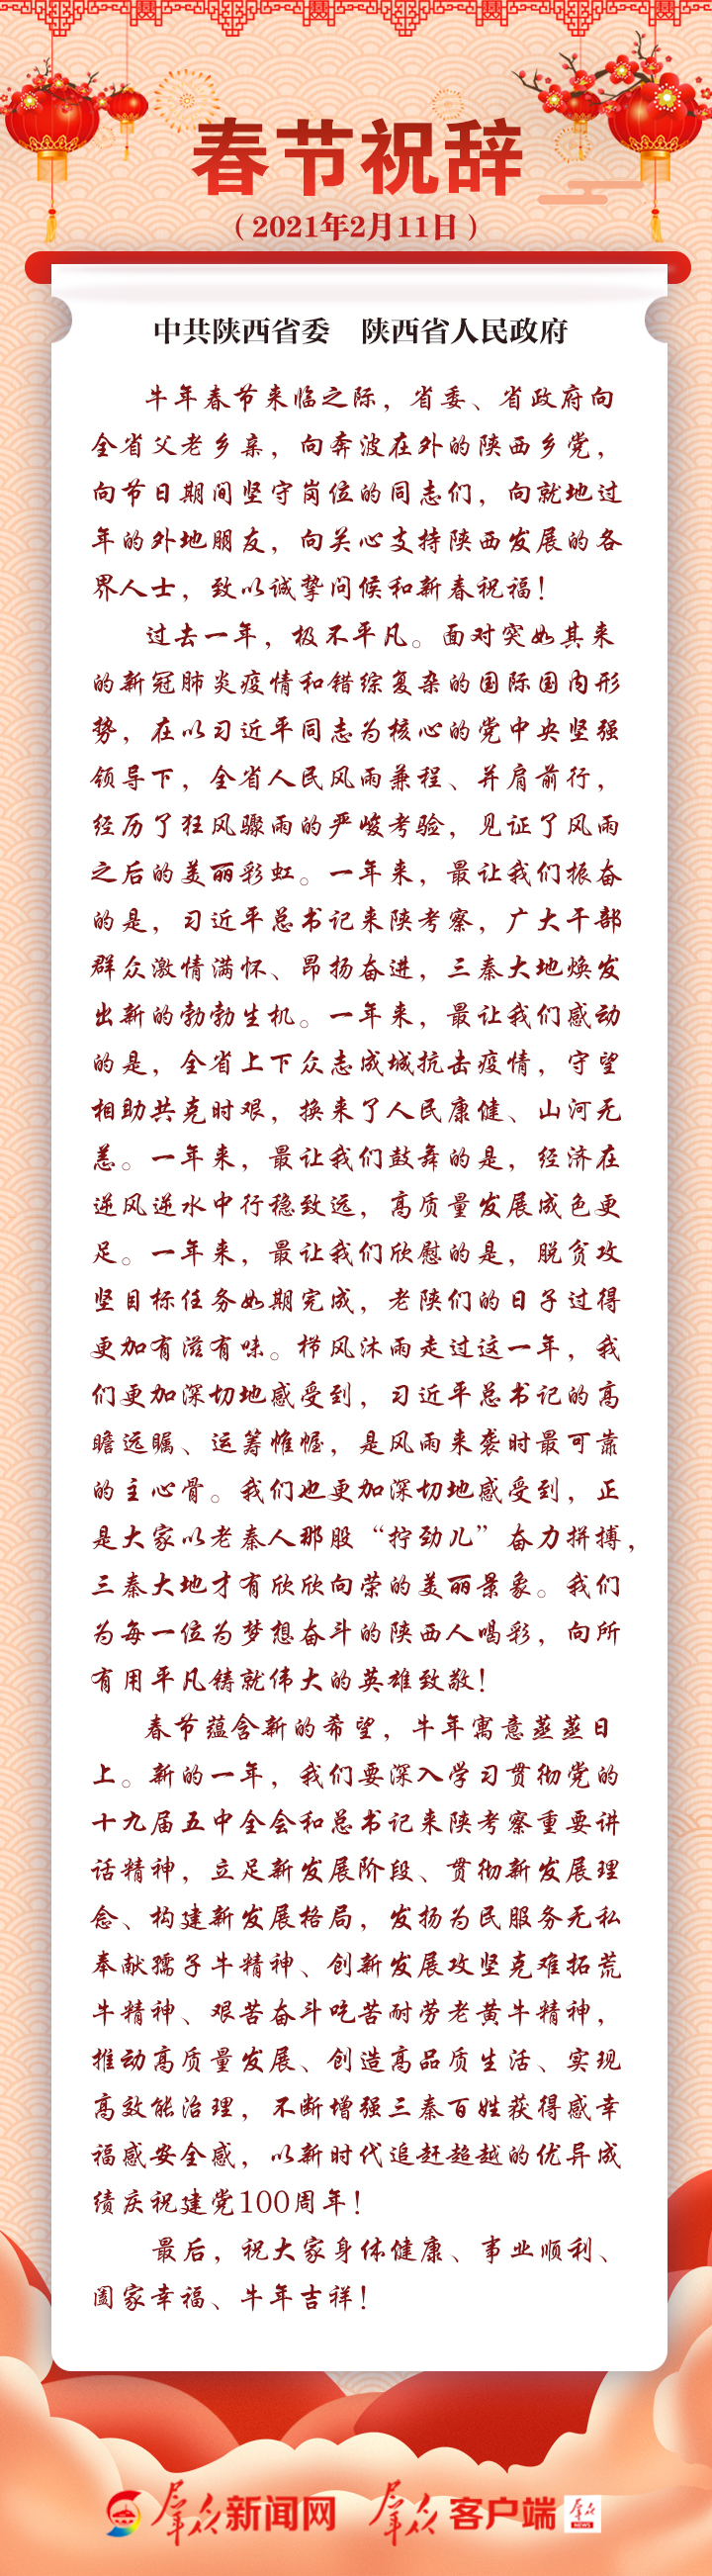 春节祝辞
（2021年2月11日）
中共陕西省委　陕西省人民政府
牛年春节来临之际，省委、省政府向
全省父老乡亲，向奔波在外的陕西乡党，
向节日期间坚守岗位的同志们，向就地过
年的外地朋友，向关心支持陕西发展的各
界人士，致以诚挚问候和新春祝福！
过去一年，极不平凡。面对突如其来
的新冠肺炎疫情和错综复杂的国际国内形
势，在以习近平同志为核心的党中央坚强
领导下，全省人民风雨兼程、并肩前行，
经历了狂风骤雨的严峻考验，见证了风雨
之后的美丽彩虹。一年来，最让我们振奋
的是，习近平总书记来陕考察，广大干部
群众激情满怀、昂扬奋进，三秦大地焕发
出新的勃勃生机。一年来，最让我们感动
的是，全省上下众志成城抗击疫情，守望
相助共克时艰，换来了人民康健、山河无
恙。一年来，最让我们鼓舞的是，经济在
逆风逆水中行稳致远，高质量发展成色更
足。一年来，最让我们欣慰的是，脱贫攻
坚目标任务如期完成，老陕们的日子过得
更加有滋有味。栉风沐雨走过这一年，我
们更加深切地感受到，习近平总书记的高
瞻远瞩、运筹帷幄，是风雨来袭时最可靠
的主心骨。我们也更加深切地感受到，正
是大家以老秦人那股“拧劲儿”奋力拼搏，
三秦大地才有欣欣向荣的美丽景象。我们
为每一位为梦想奋斗的陕西人喝彩，向所
有用平凡铸就伟大的英雄致敬！
春节蕴含新的希望，牛年寓意蒸蒸日
上。新的一年，我们要深入学习贯彻党的
十九届五中全会和总书记来陕考察重要讲
话精神，立足新发展阶段、贯彻新发展理
念、构建新发展格局，发扬为民服务无私
奉献孺子牛精神、创新发展攻坚克难拓荒
牛精神、艰苦奋斗吃苦耐劳老黄牛精神，
推动高质量发展、创造高品质生活、实现
高效能治理，不断增强三秦百姓获得感幸
福感安全感，以新时代追赶超越的优异成
绩庆祝建党100周年！
最后，祝大家身体健康、事业顺利、
阖家幸福、牛年吉祥！
群众新闻网　群众客户端 群众 NEWS